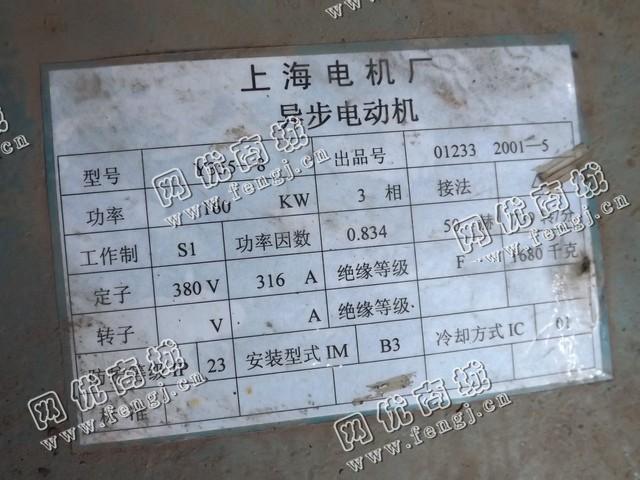 上海电机厂
异步电动机
型号 出品号 01233 2001—5
功率 160 KW 3 相 接法
工作制 S1 功率因数 0.834 50
定子 380 V 316 A 绝缘等级 F 1680 千克
转子 V A 绝缘等级
防护等级IP 23 安装型式 IM B3 冷却方式 IC 01
准
网优商城
www.fengj.cn
网优商城
www.fengj.cn
网优商城
www.fengj.cn
网优商城
www.fengj.cn